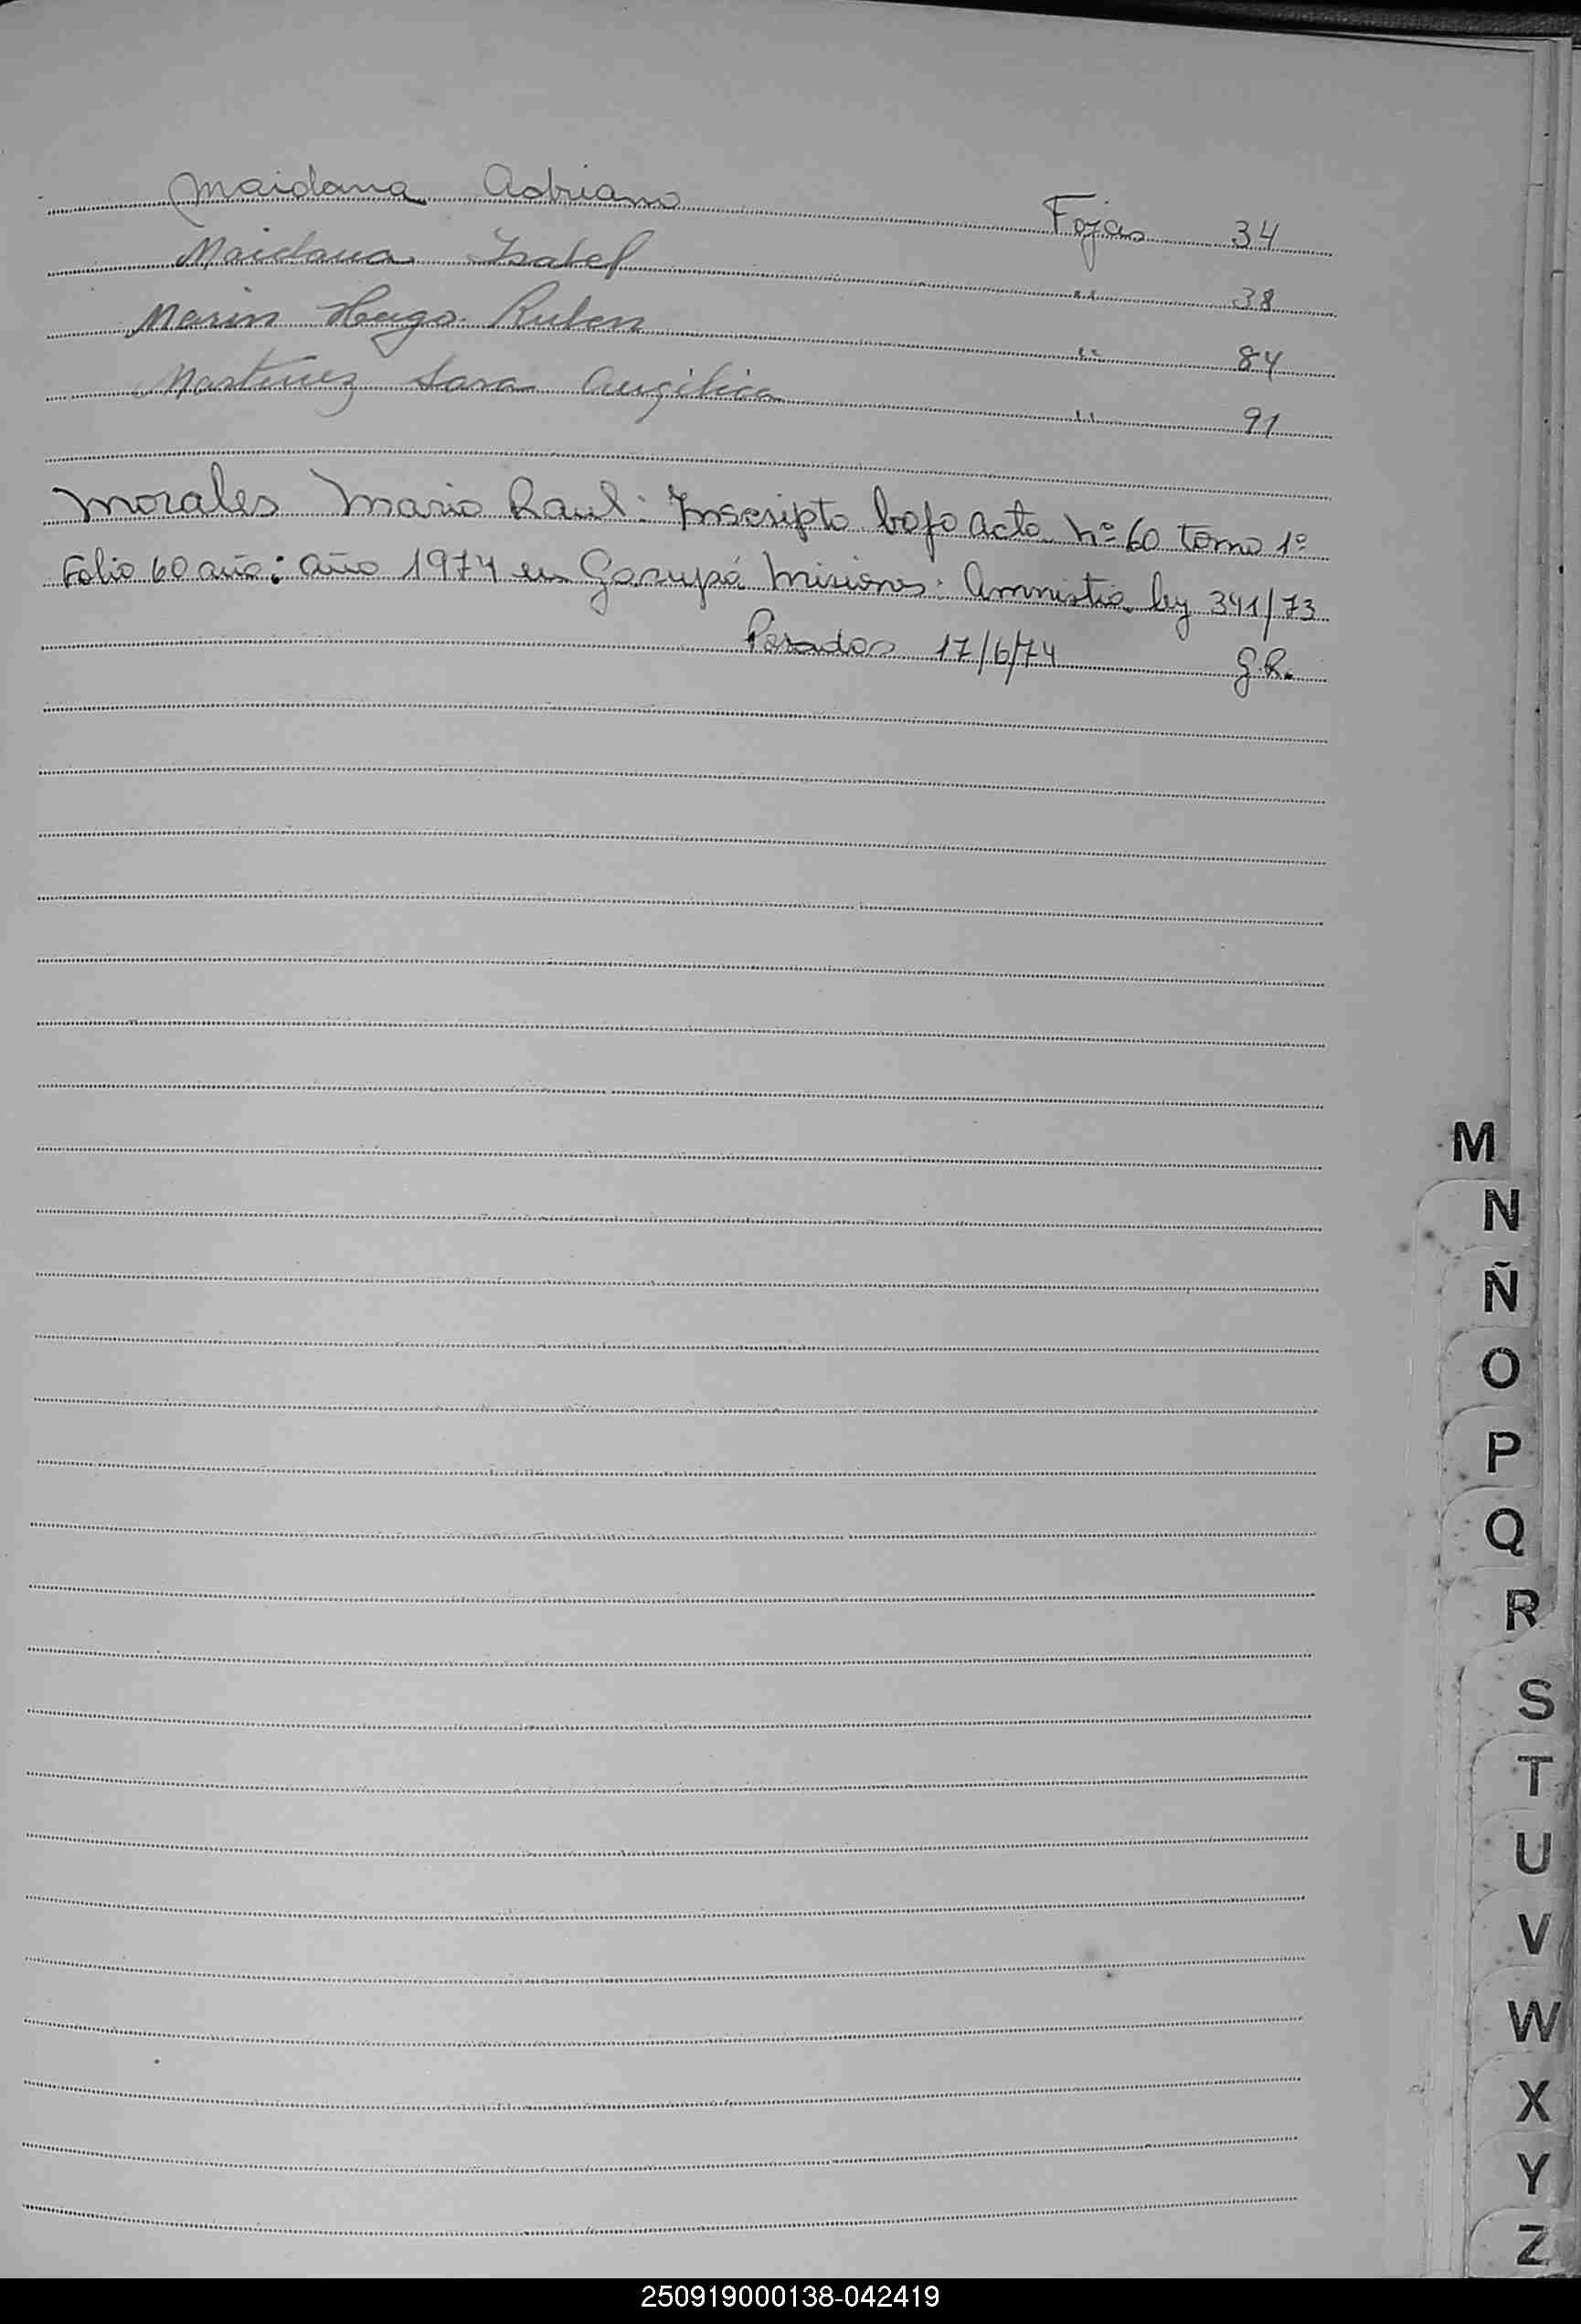 Maidana Adriano Fojas 34
Maidana Isabel " 38
Marin Hugo Ruben " 84
Martinez Sara Angélica " 91
Morales Mario Raul: Inscripto bajo acta nº 60 tomo 1º
Folio 60 año: año 1974 en Garupá Misiones: Amnistia ley 341/73
Posadas 17/6/74 G.R.
M
N
Ñ
O
P
Q
R
S
T
U
V
W
X
Y
Z
250919000138-042419